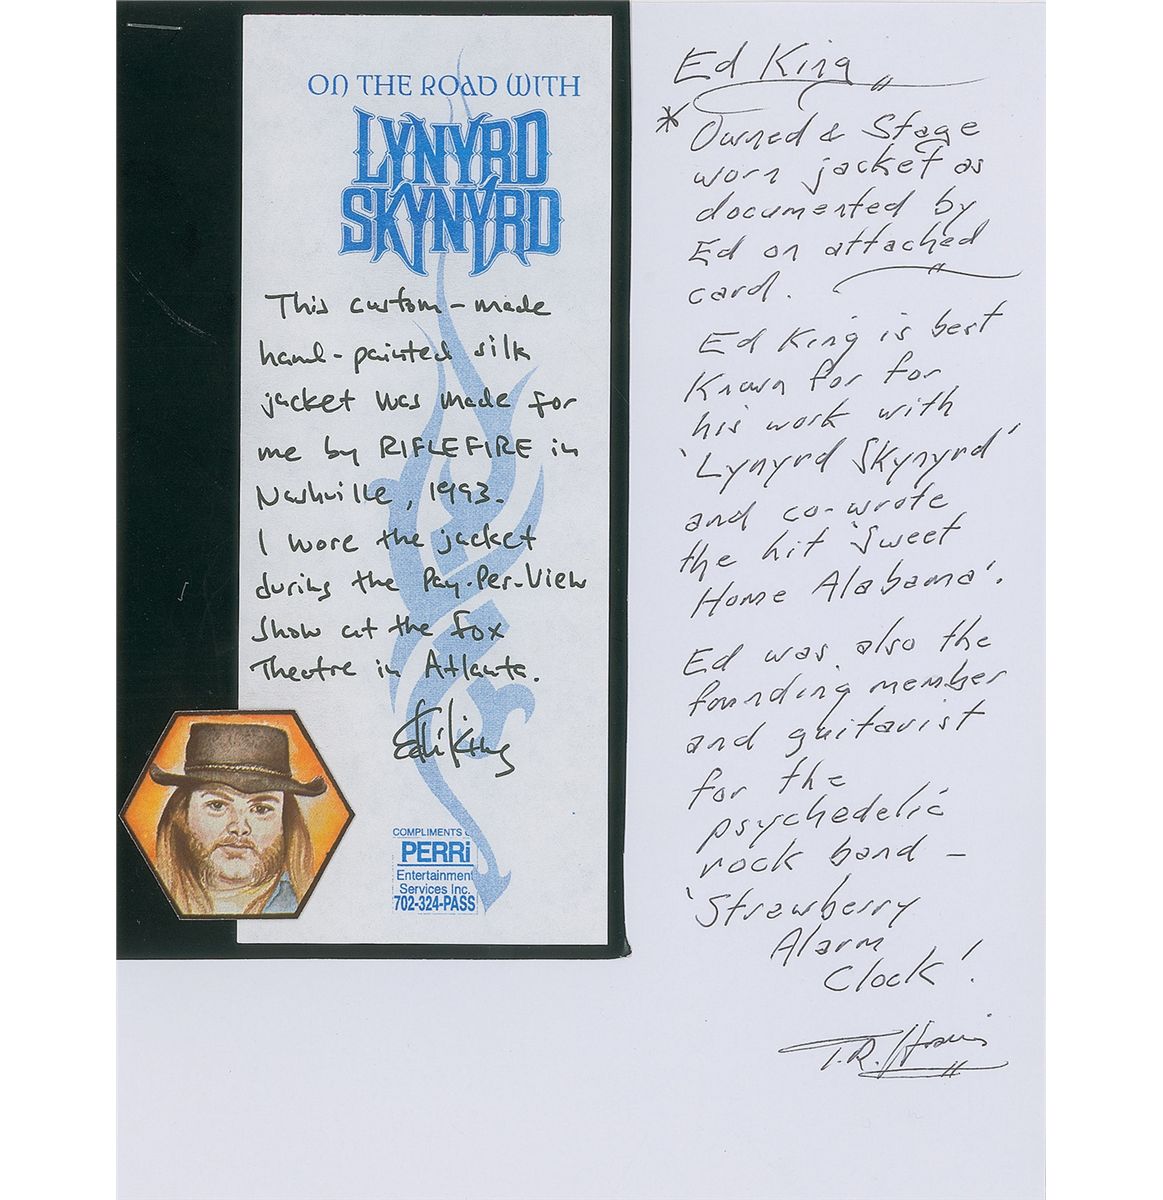 ON THE ROAD WITH
LYNYRD
SKYNYRD
This custom-made
hand-painted silk
jacket was made for
me by RIFLEFIRE in
Nashville, 1993.
I wore the jacket
during the Pay-Per-View
Show at the Fox
Theatre in Atlanta.
Ed King
COMPLIMENTS
PERRi
Entertainment
Services Inc.
702-324-PASS
Ed King
* Owned & Stage
worn jacket as
documented by
Ed on attached
card.
Ed King is best
Known for for
his work with
'Lynyrd Skynyrd'
and co-wrote
the hit 'Sweet
Home Alabama'.
Ed was also the
founding member
and guitarist
for the
psychedelic
rock band –
'Strawberry
Alarm
Clock'.
T.R.